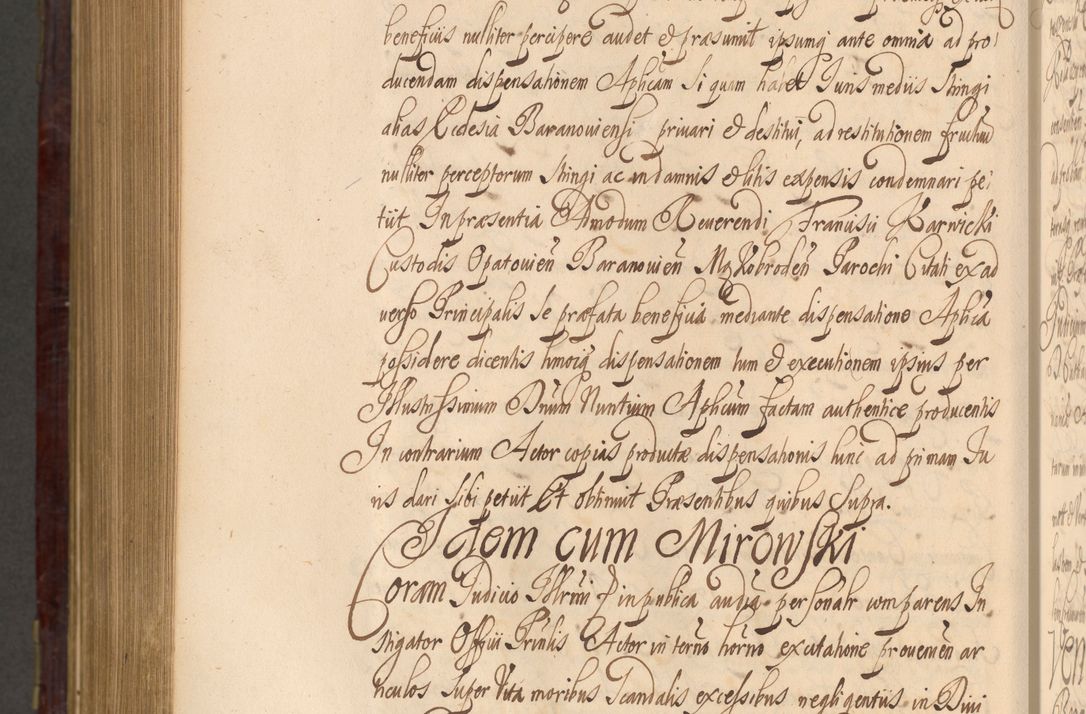 beneficiis nulliter percipere audet & præsumit ipsumq ante omnia ad pro
ducendam dispensationem Aplicam Si quam habet Juris mediis Stringi
alias Ecclesia Baranoviensi privari & destitui, ad restitutionem fructuu
nulliter perceptorum Stringi ac in damnis & litis expensis condemnari pe
tiit In præsentia Admodum Reverendi Francisci Karwicki
Custodis Opatovien Baranovien Mokobroden Parochi Citati ex ad
verso Principalis se præfata beneficia mediante dispensatione Aplica
possidere dicentis hmoiq dispensationem tum & executionem ipsius per
Illustrissimum Dnum Nuntium Aplicum factam authentice producentis
In contrarium Actor copias productæ dispensationis hinc ad primam Ju
ris dari sibi petiit Et obtinuit Præsentibus quibus Supra.
Idem cum Mirowski
Coram Judicio Illrimi in publica audia personalr comparens In
stigator Officii Prinlis Actor in termo horno ex citatione provenien ar
ticulos super Vita moribus Scandalis excessibus negligentiis in Divi